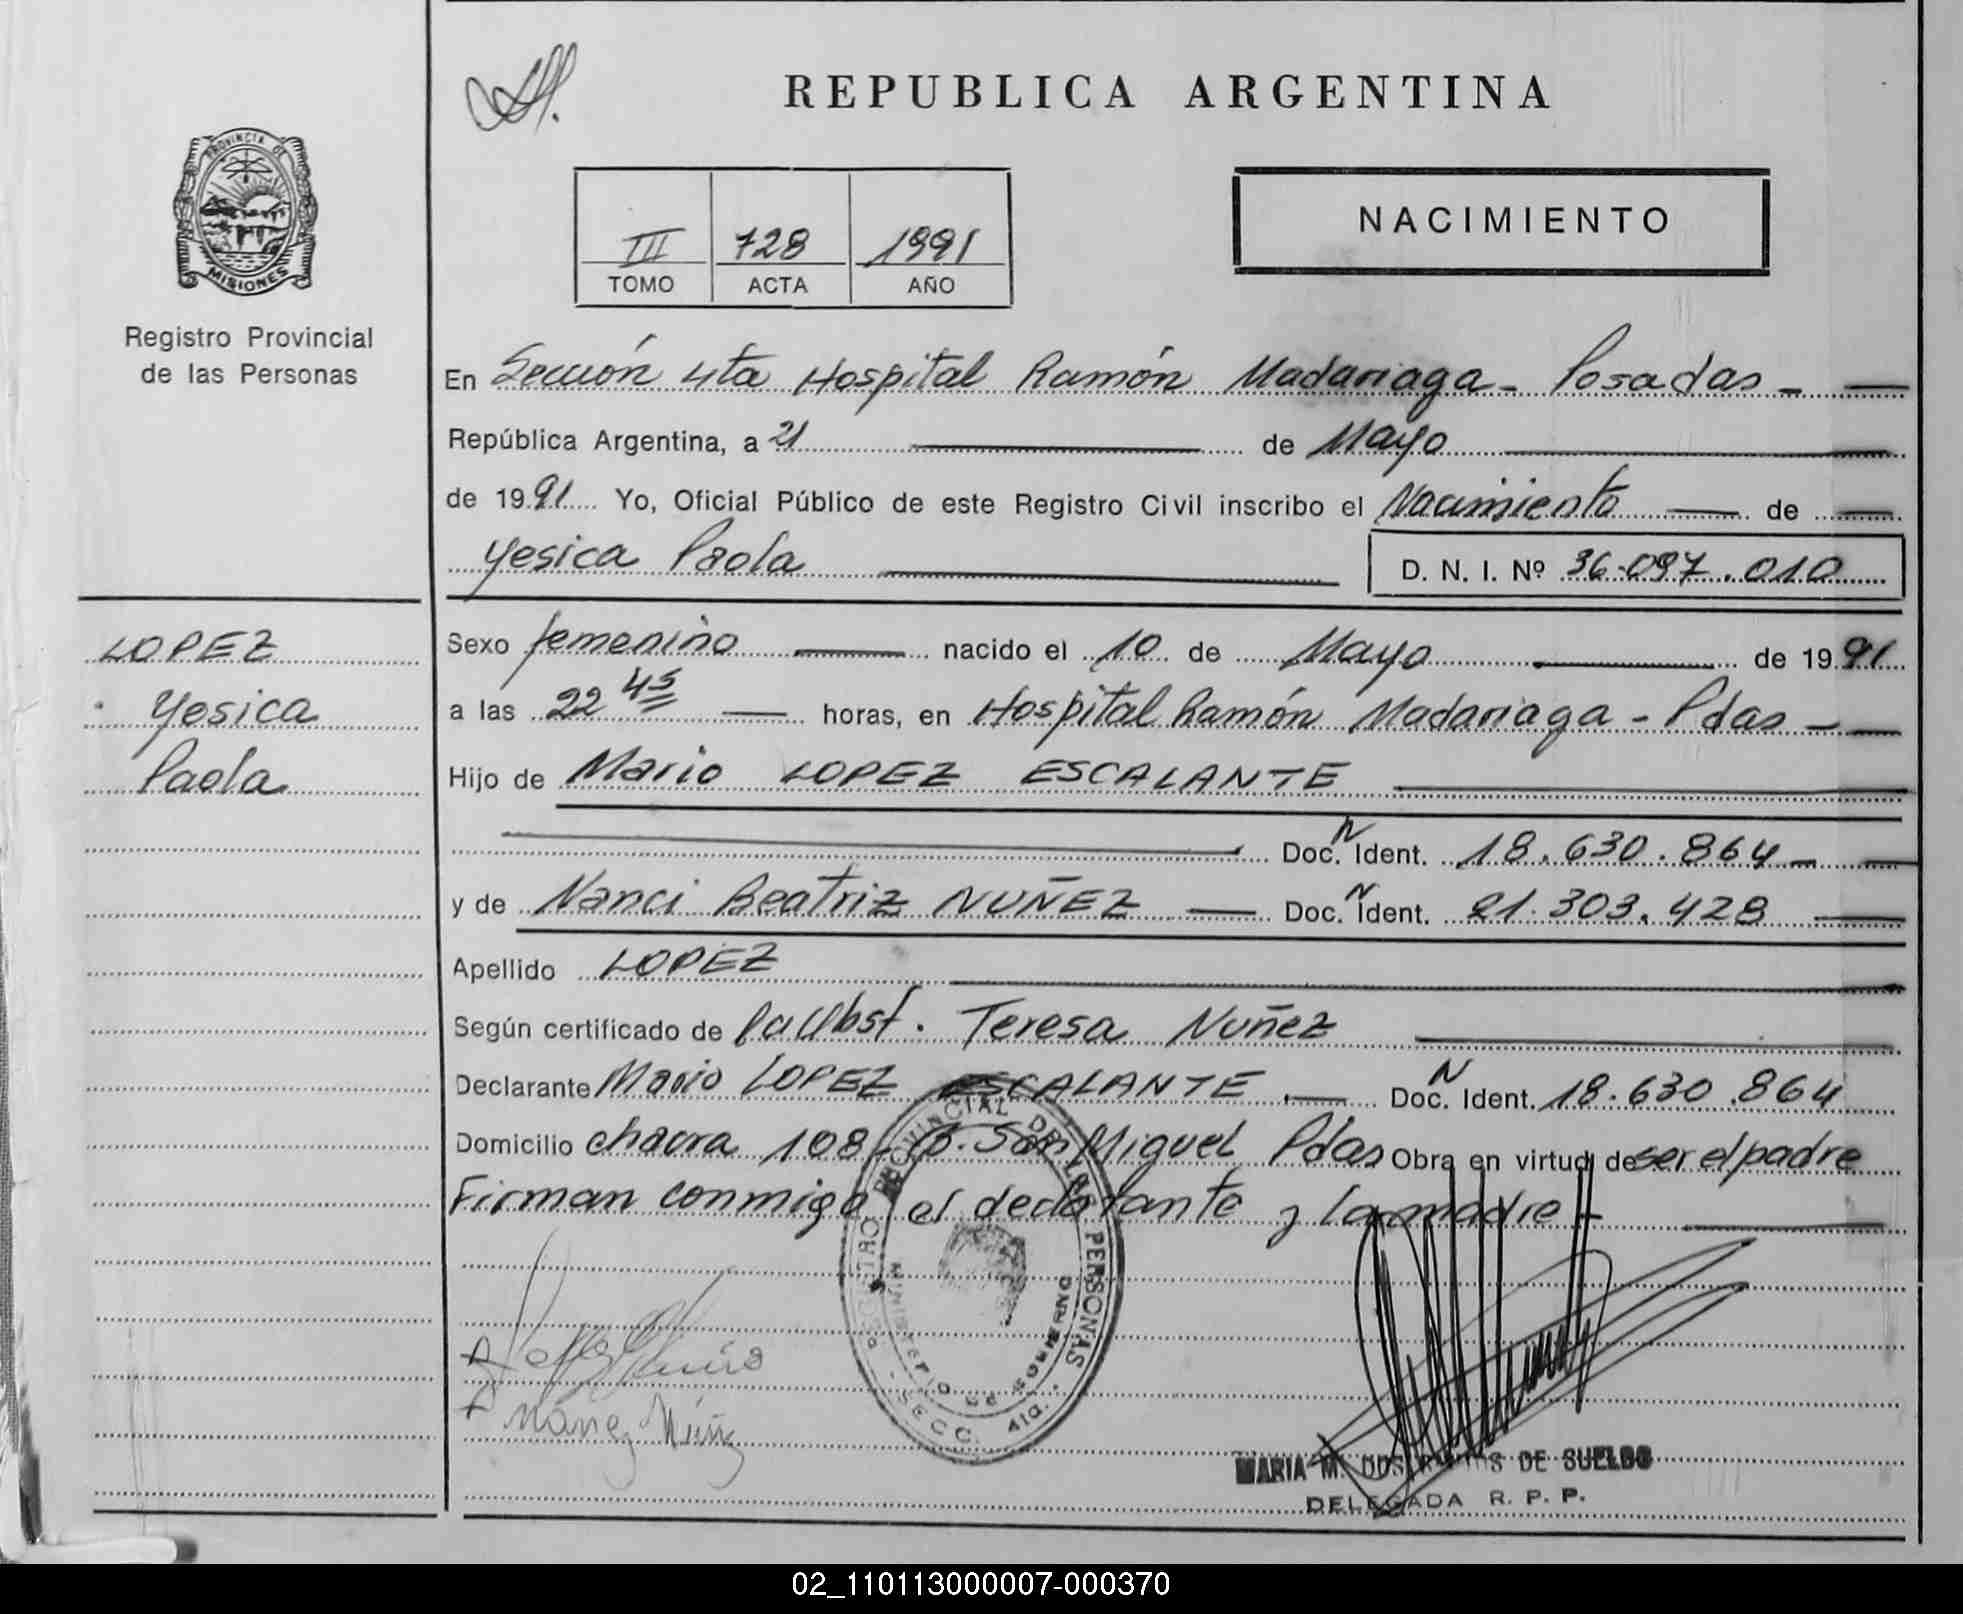 REPUBLICA ARGENTINA
PROVINCIA DE
MISIONES
Registro Provincial
de las Personas
III 728 1991
TOMO ACTA AÑO
NACIMIENTO
En Sección 4ta Hospital Ramón Madariaga - Posadas -
República Argentina, a 21 de Mayo
de 1991 Yo, Oficial Público de este Registro Civil inscribo el Nacimiento de
Yesica Paola D. N. I. Nº 36.097.010
LOPEZ
Yesica
Paola
Sexo femenino nacido el 10 de Mayo de 1991
a las 22 45 horas, en Hospital Ramón Madariaga - Pdas -
Hijo de Mario LOPEZ ESCALANTE
Doc. N Ident. 18.630.864
y de Nanci Beatriz NUÑEZ Doc. N Ident. 21.303.428
Apellido LOPEZ
Según certificado de Teresa Nuñez
Declarante Mario LOPEZ ESCALANTE Doc. N Ident. 18.630.864
Domicilio chacra 108 - B. San Miguel Pdas Obra en virtud de ser el padre
Firman conmigo el declarante y la madre -
REGISTRO PROVINCIAL DE LAS PERSONAS
MINISTERIO DE GOBIERNO
SECC. 4ta.
MARIA M. DOS SANTOS DE SUELDO
DELEGADA R. P. P.
02_110113000007-000370